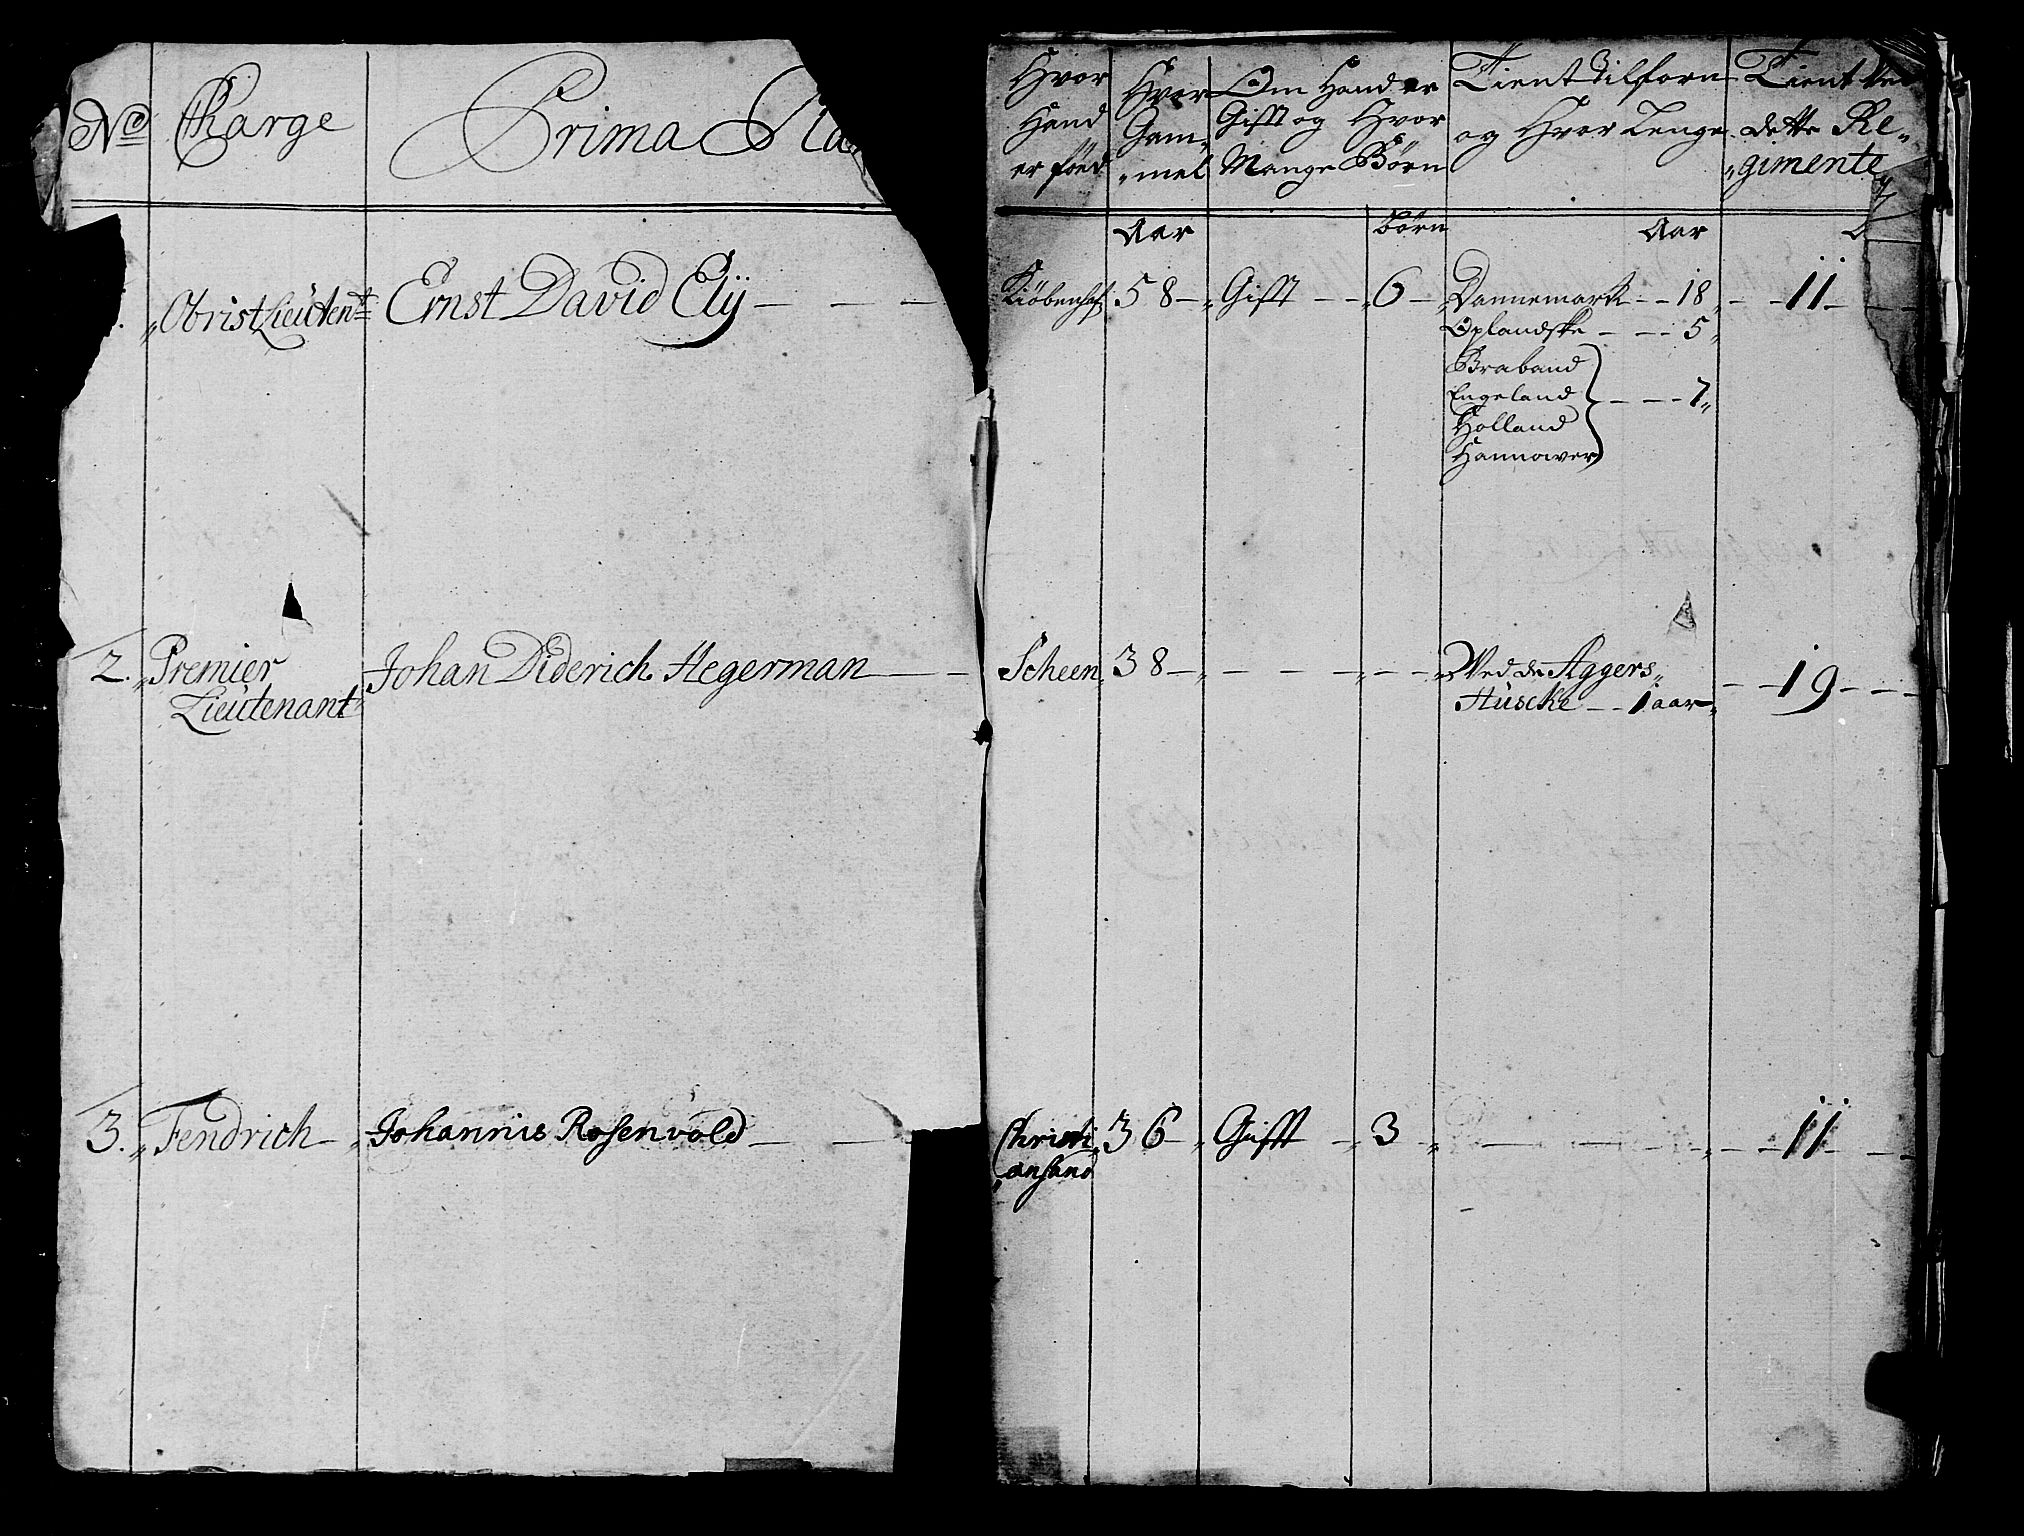 No Charge Prima Pla
Hvor Hand er föed
Hvor Gam„ „mel
Om Hand er Gift og Hvor Mange Börn
Tient tilforn og Hvor Lenge
Tient ved dette Re„ „gimente
Aar Börn Aar
„Obrist Lieutent Ernst David Elÿ — — — Kiöbenhaf 58 — „Gift — — „6 — „Dannemark — — 18„ — — 11 — —
Oplandske — — — 5„
Braband
Engeland — — — 7„
Holland
Hannower
2. „Premier Johan Diderich Hegerman — — Scheen 38 — „ — — — „ — — „Ved de Aggers„ — — 19 — — —
Lieutenant Huscke — — 1 aar„
3. „Fendrich — „Johannis Rosenvold — — Christi„ 36 — „Gift — „3 „ — — — „ — — 11 — —
„ansand